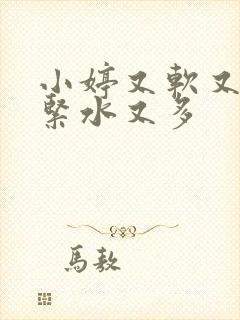 小婷又軟又
緊水又多
馬敖